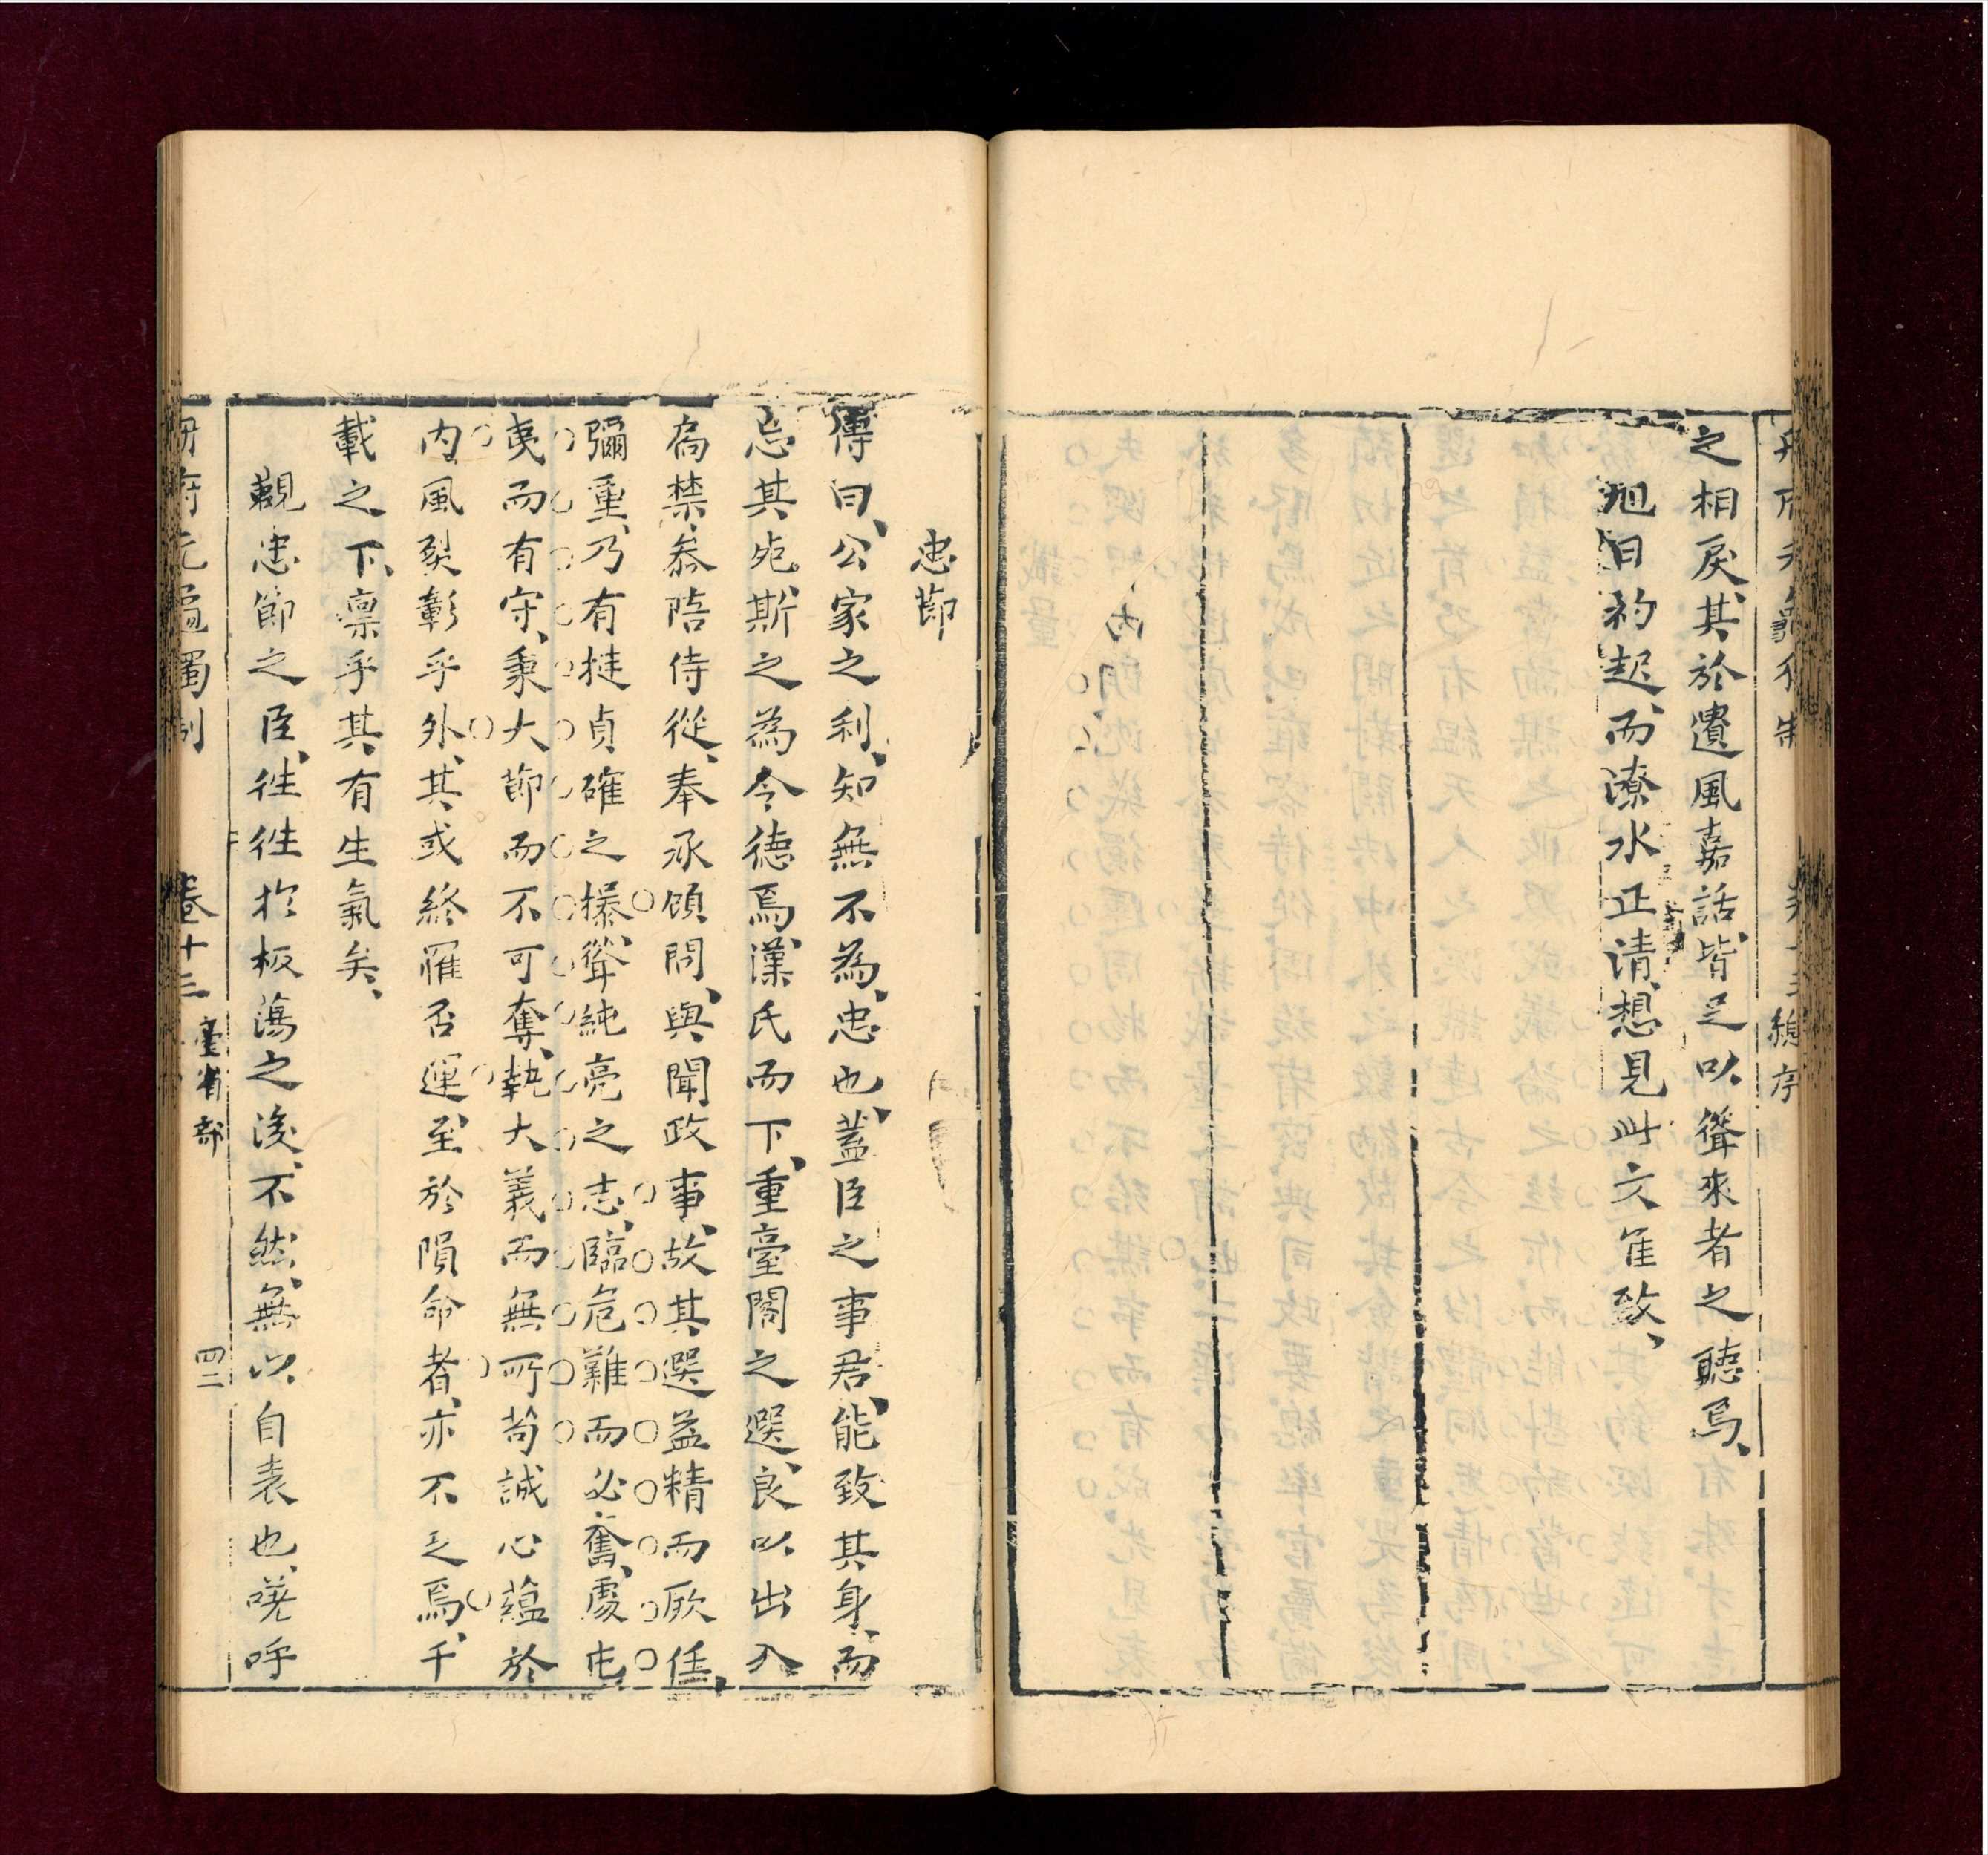 之相戾、其於遺風嘉話、皆足以聳來者之聽焉、
旭日初起、而潦水正清、想見此文隹致、
忠節
傳曰、公家之利、知無不為、忠也、蓋臣之事君、能致其身、而
忘其死、斯之為令德焉、漢氏而下、重臺閣之選、良以出入
禁、叅陪侍從、奉承顧問、與聞政事、故其選益精而厥任、
彌重、乃有挺貞確之操、聳純亮之志、臨危難而必奮、處屯
夷而有守、秉大節而不可奪、執大義而無所苟、誠心蘊於
內、風烈彰乎外、其或終罹否運、至於隕命者、亦不乏焉、千
載之下、凛乎其有生氣矣、
觀忠節之臣、徃徃於板蕩之後、不然、無以自表也、嗟呼
卷十三 臺省部 四二